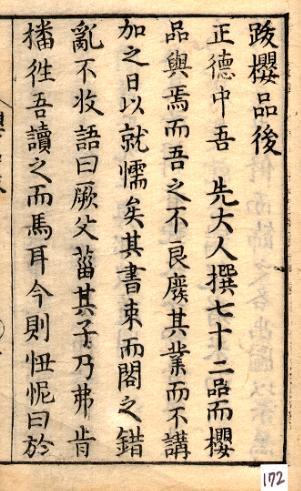 跋櫻品後
正德中吾　先大人撰七十二品而櫻
品與焉而吾之不良廢其業而不講
加之日以就懦矣其書束而閣之錯
亂不收語曰厥父菑其子乃弗肯
播徃吾讀之而馬耳今則忸怩曰於
172